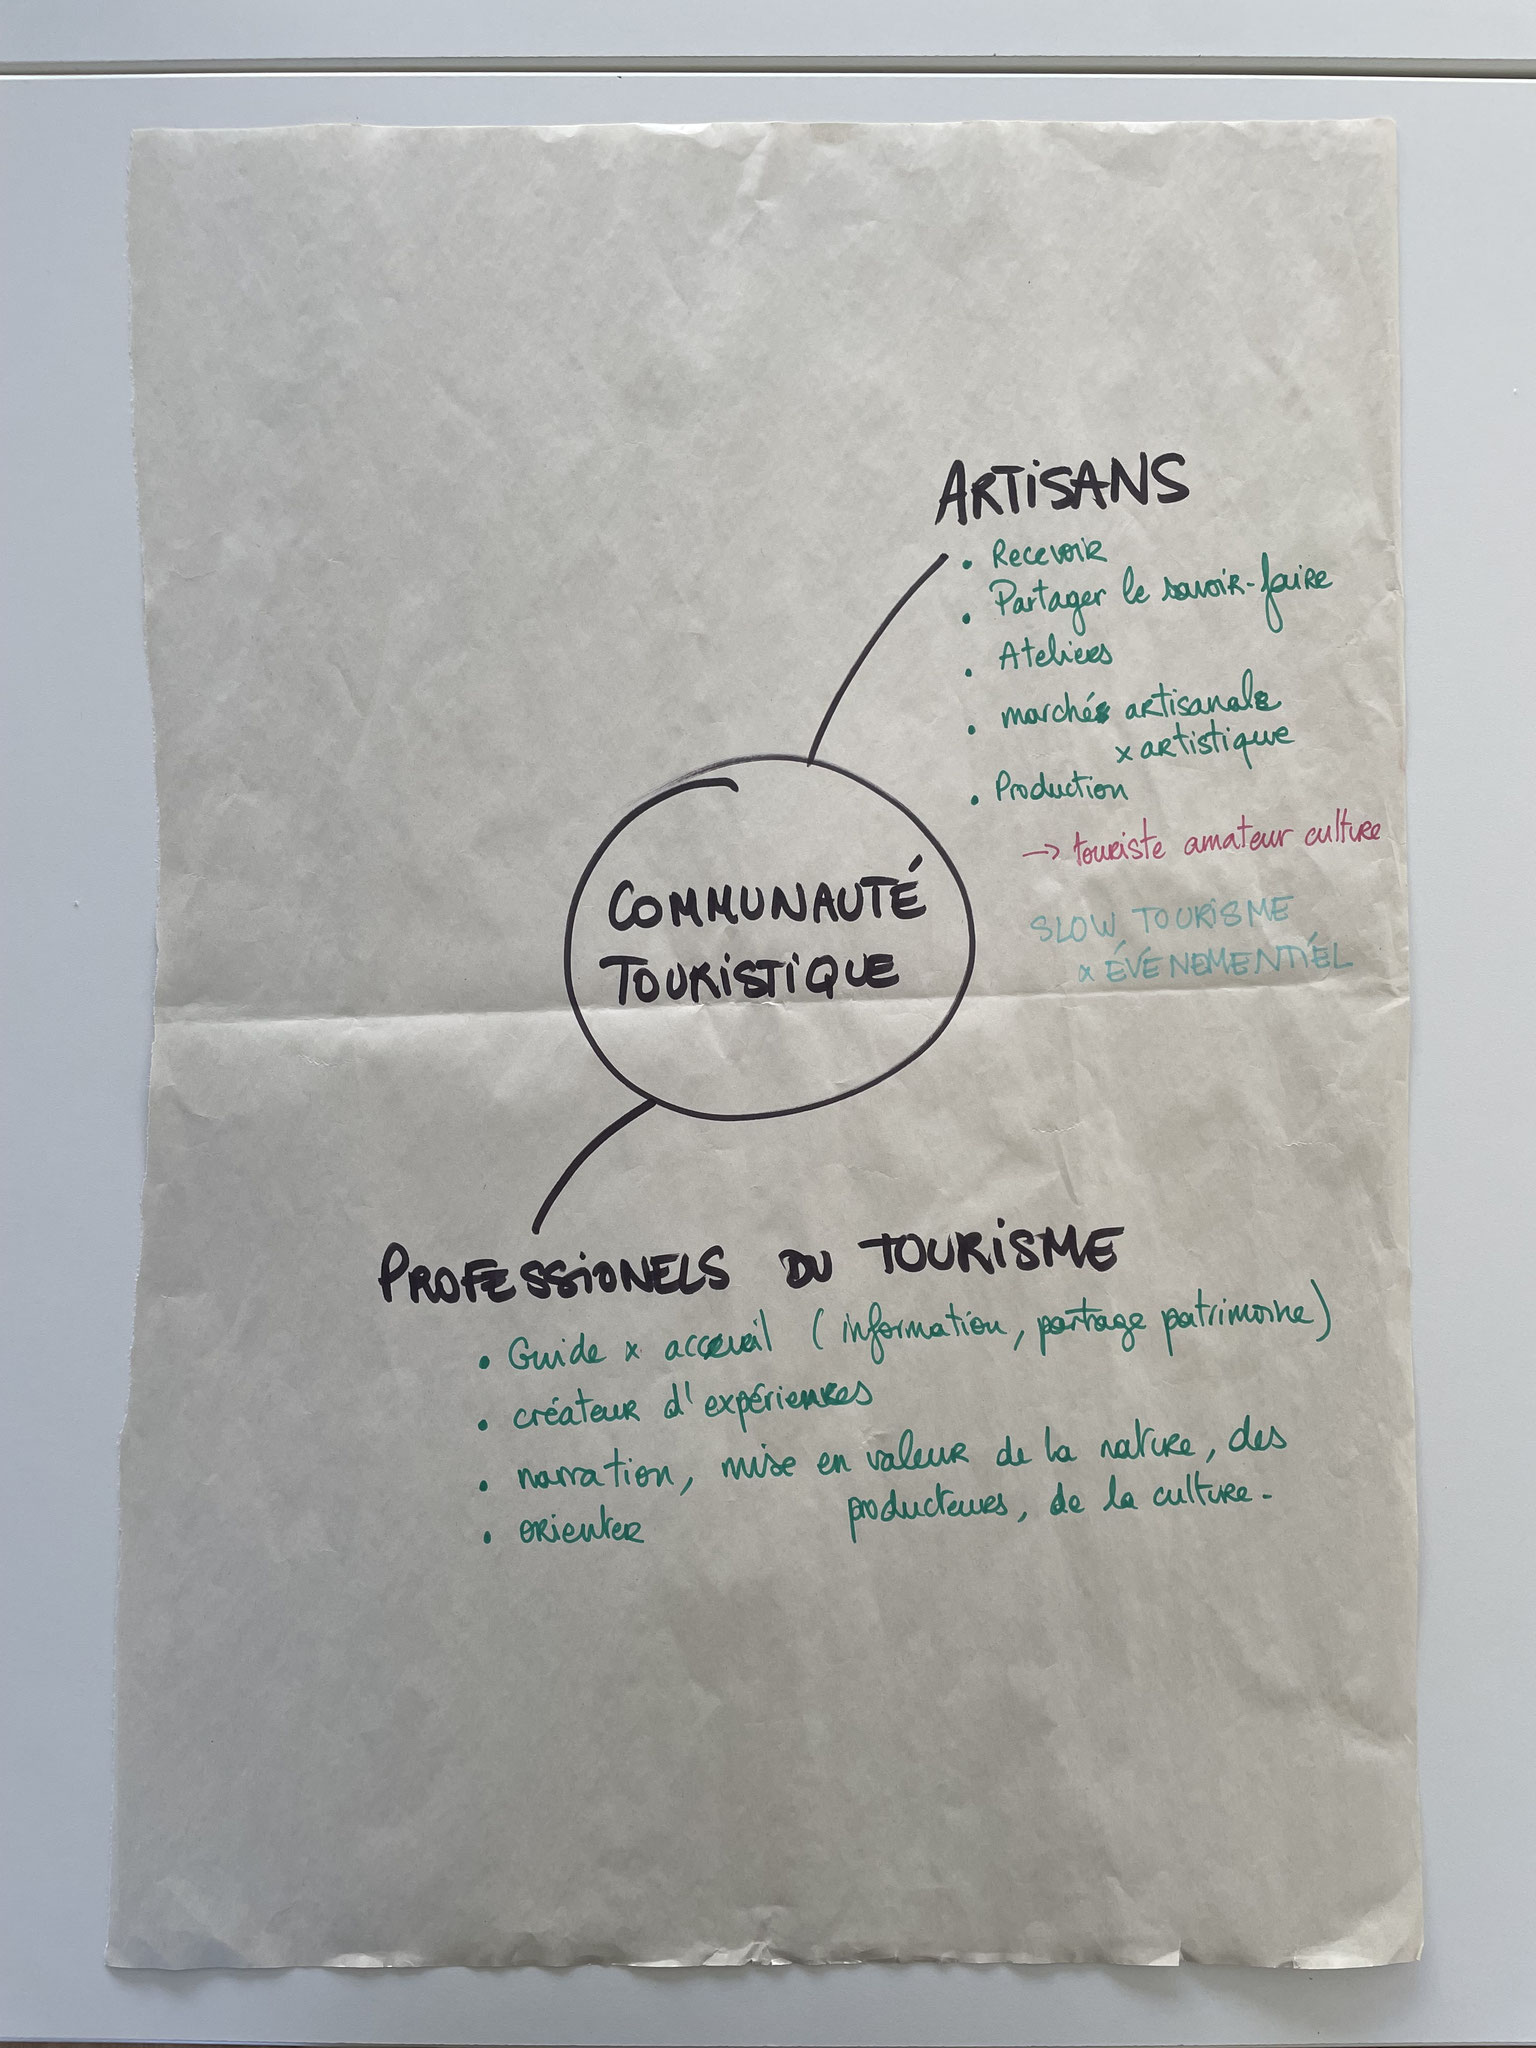 ARTISANS
• Recevoir
• Partager le savoir-faire
• Ateliers
• marchés artisanals
x artistique
• Production
→ touriste amateur culture
SLOW TOURISME
x ÉVÉNEMENTIEL
COMMUNAUTÉ
TOURISTIQUE
PROFESSIONELS DU TOURISME
• Guide x accueil (information, partage patrimoine)
• créateur d'expériences
• narration, mise en valeur de la nature, des
producteurs, de la culture.
• orienter